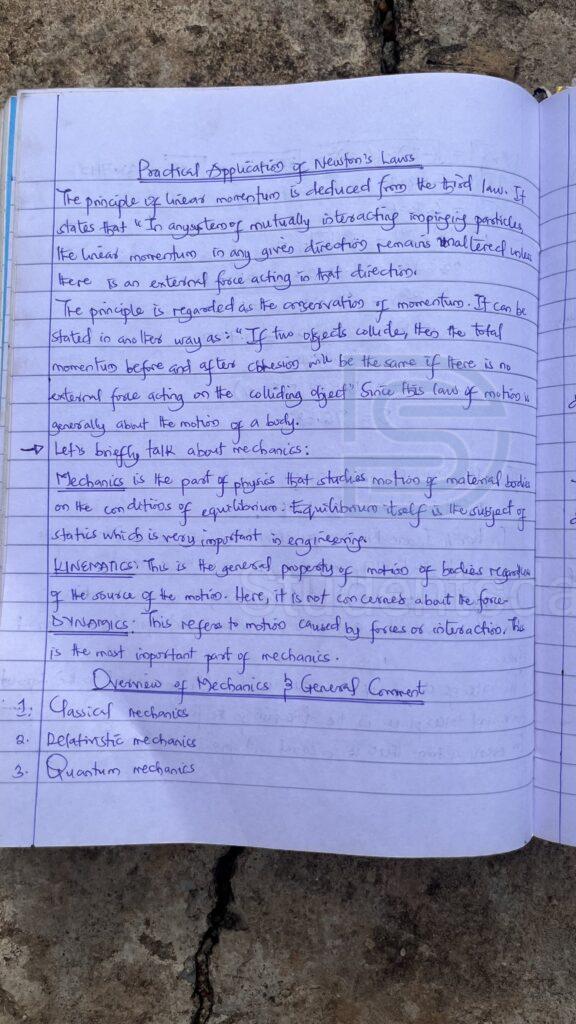 Practical Application of Newton's Laws
The principle of linear momentum is deduced from the third law. It
states that "In anysystem of mutually interacting impinging particles,
the linear momentum in any given direction remains unaltered unless
there is an external force acting in that direction.
The principle is regarded as the conservation of momentum. It can be
stated in another way as: "If two objects collide, then the total
momentum before and after cohesion will be the same if there is no
external force acting on the colliding object" Since this law of motion is
generally about the motion of a body.
→ Let's briefly talk about mechanics:
Mechanics is the part of physics that studies motion of material bodies
on the conditions of equilibrium. Equilibrium itself is the subject of
statics which is very important in engineering.
KINEMATICS: This is the general property of motion of bodies regardless
of the source of the motion. Here, it is not concerned about the force.
DYNAMICS: This refers to motion caused by forces or interaction. This
is the most important part of mechanics.
Overview of Mechanics & General Comment
1. Classical mechanics
2. Relativistic mechanics
3. Quantum mechanics